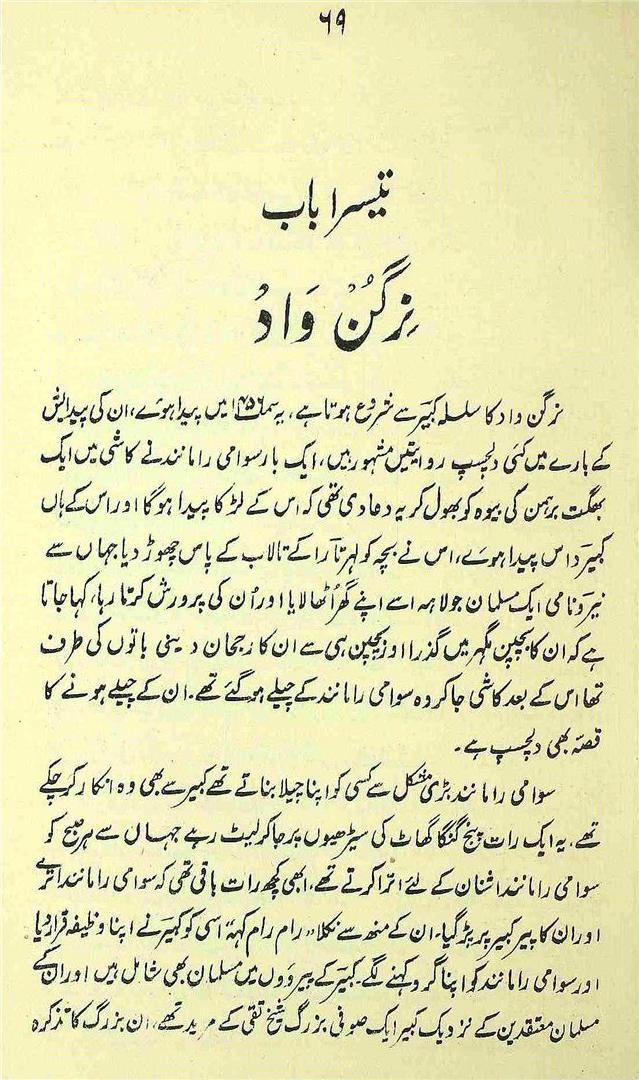 ۶۹
تیسرا باب
نِرگُنْ وَادْ
نرگن واد کا سلسلہ کبیر سے شروع ہوتا ہے، یہ سمات ۱۴۵۶ میں پیدا ہوئے، ان کی پیدایش
کے بارے میں کئی دلچسپ روایتیں مشہور ہیں، ایک بار سوامی رامانند نے کاشی میں ایک
بھگت برہمن کی بیوہ کو بھول کر یہ دعا دی تھی کہ اس کے لڑکا پیدا ہوگا اور اس کے ہاں
کبیر داس پیدا ہوے، اس نے بچہ کو لہرتارا کے تالاب کے پاس چھوڑ دیا جہاں سے
نیرو نامی ایک مسلمان جولاہہ اسے اپنے گھر اُٹھا لایا اور اُن کی پرورش کرتا رہا، کہا جاتا
ہے کہ ان کا بچپن مگہر میں گذرا اور بچپن ہی سے ان کا رجحان دینی باتوں کی طرف
تھا اس کے بعد کاشی جا کر وہ سوامی رامانند کے چیلے ہو گئے تھے۔ ان کے چیلے ہونے کا
قصّہ بھی دلچسپ ہے۔
سوامی رامانند بڑی مشکل سے کسی کو اپنا چیلا بناتے تھے کبیر سے بھی وہ انکار کر چکے
تھے، یہ ایک رات پنچ گنگا گھاٹ کی سیڑھیوں پر جا کر لیٹ رہے جہاں سے ہر صبح کو
سوامی رامانند اشنان کے لئے اترا کرتے تھے، ابھی کچھ رات باقی تھی کہ سوامی رامانند اترے
اور ان کا پیر کبیر پر پڑ گیا۔ ان کے منھ سے نکلا "رام رام کہہ" اسی کو کبیر نے اپنا وظیفہ قرار دیا
اور سوامی رامانند کو اپنا گرو کہنے لگے۔ کبیر کے پیرووں میں مسلمان بھی شامل ہیں اور ان کے
مسلمان معتقدین کے نزدیک کبیر ایک صوفی بزرگ شیخ تقی کے مرید تھے، ان بزرگ کا تذکرہ